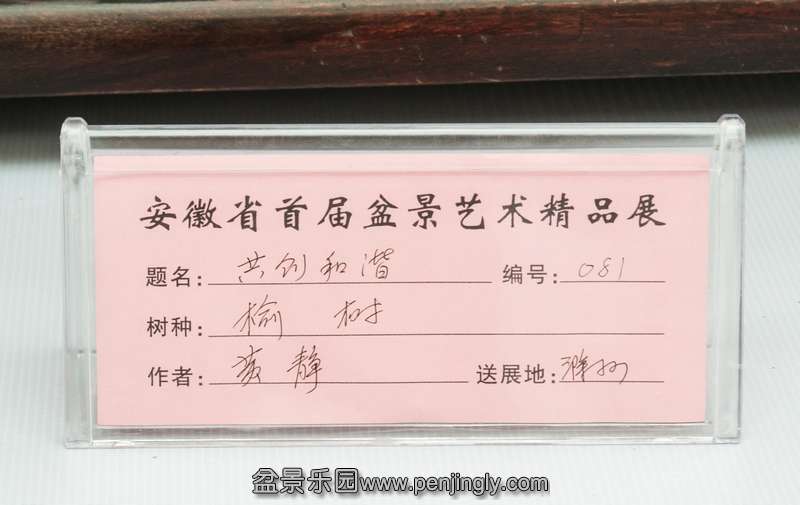 安徽省首届盆景艺术精品展
题名：共创和谐 编号：081
树种：榆 树
作者：静 送展地：滁州
盆景乐园www.penjingly.com